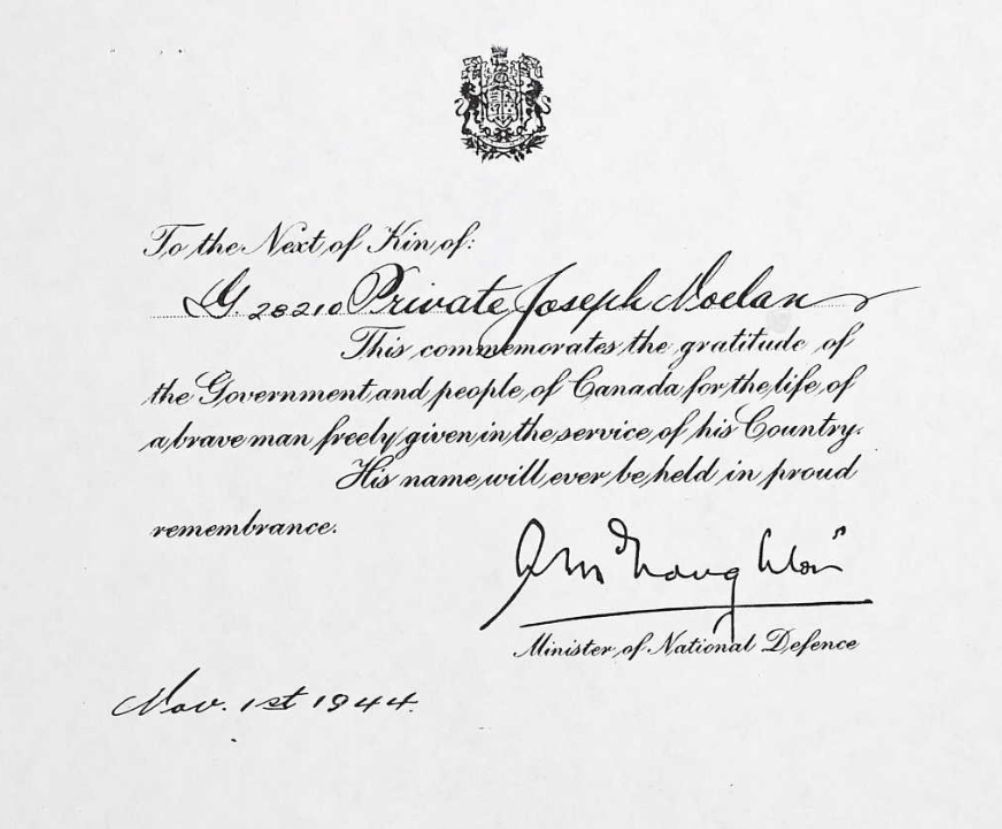 To the Next of Kin of:
G. 28210 Private Joseph Noelan
This commemorates the gratitude of
the Government and people of Canada for the life of
a brave man freely given in the service of his Country.
His name will ever be held in proud
remembrance.
Minister of National Defence
Nov. 1st 1944.